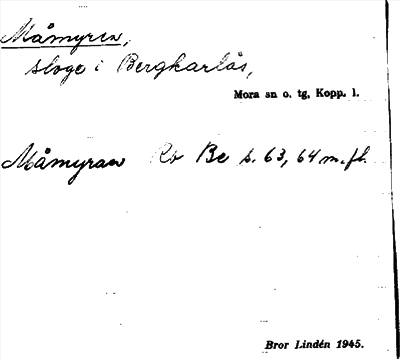 Måmyren,
sloge i Bergkarlås,
Mora sn o. tg, Kopp. l.
Måmyran Ro Be s. 63, 64 m.fl.
Bror Lindén 1945.